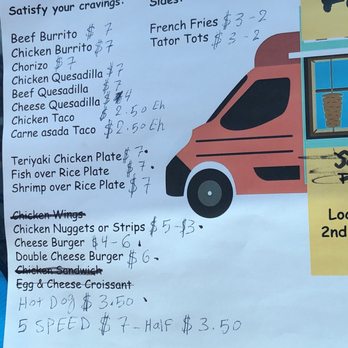 Satisfy your cravings:
Beef Burrito $ 7
Chicken Burrito $ 7
Chorizo $ 7
Chicken Quesadilla $ 7
Beef Quesadilla $ 7
Cheese Quesadilla $ 4
Chicken Taco $ 2.50 Eh
Carne asada Taco $ 2.50 Eh
Sides:
French Fries $ 3 - 2
Tator Tots $ 3 - 2
Teriyaki Chicken Plate $ 7.
Fish over Rice Plate $ 7.
Shrimp over Rice Plate $ 7
Chicken Wings
Chicken Nuggets or Strips $ 5 - $3.
Cheese Burger $ 4 - 6.
Double Cheese Burger $ 6.
Chicken Sandwich
Egg & Cheese Croissant
Hot Dog $ 3.50
5 SPEED $ 7 - Half $ 3.50
Lo
2nd